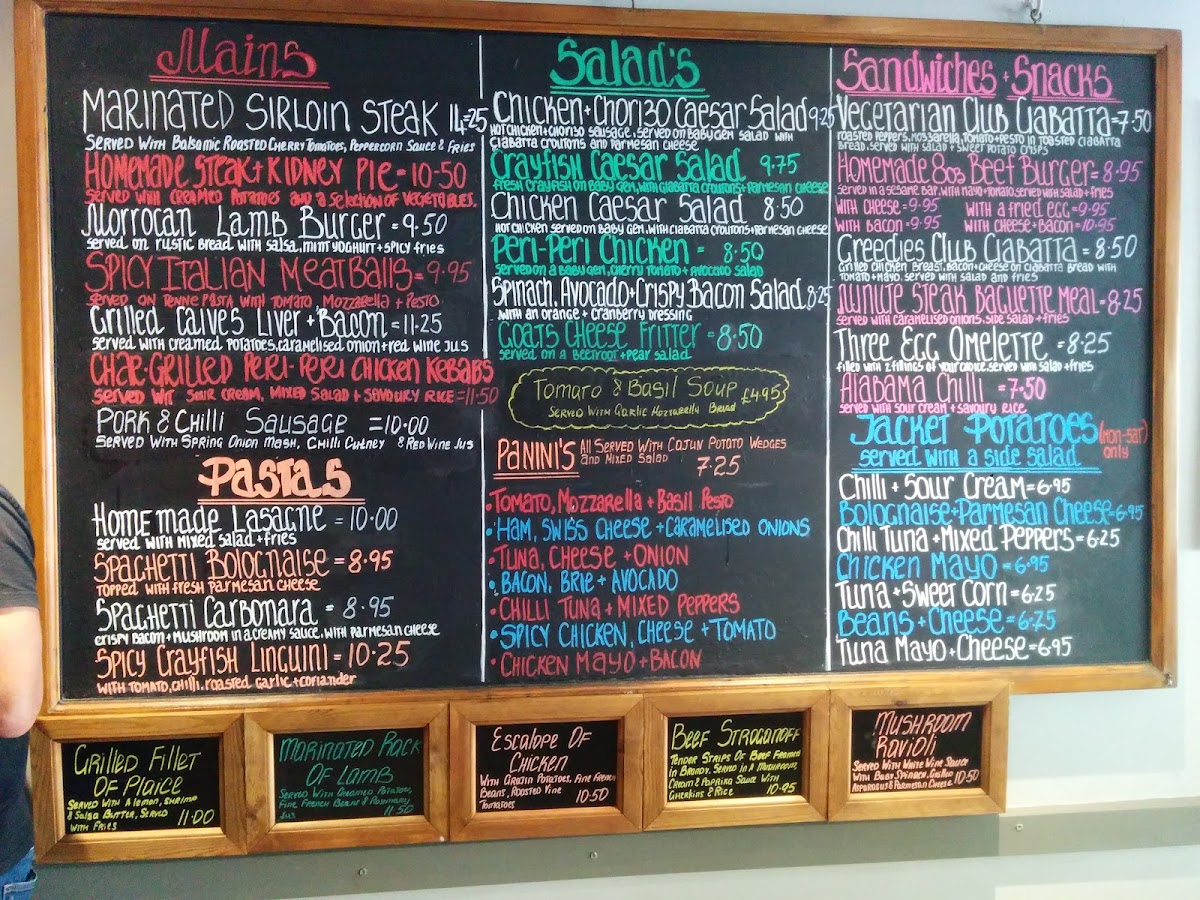 Mains
MARINATED SIRLOIN STEAK 14=25
SERVED WITH BALSAMIC ROASTED CHERRY TOMATOES, PEPPERCORN SAUCE & FRIES
HOMEMADE STEAK + KIDNEY PIE = 10-50
SERVED WITH CREAMED POTATOES AND A SELECTION OF VEGETABLES.
Morrocan Lamb Burger = 9.50
served on rustic Bread with salsa, mint yoghurt + spicy fries
SPICY ITALIAN MEATBALLS = 9.95
SERVED ON PENNE PASTA WITH TOMATO, MOZZARELLA + PESTO
Grilled Calves Liver + Bacon = 11.25
served with creamed potatoes, caramelised onion + red wine jus
CHAR-GRILLED PERI-PERI CHICKEN KEBABS
SERVED WIT SOUR CREAM, MIXED SALAD + SAVOURY RICE = 11-50
PORK & CHILLI SAUSAGE = 10-00
SERVED WITH SPRING ONION MASH, CHILLI CUTNEY & RED WINE JUS
Pastas
Home made Lasagne = 10-00
served with mixed salad + fries
Spaghetti Bolognaise = 8.95
TOPPED WITH FRESH PARMESAN CHEESE
Spaghetti Carbonara = 8.95
crispy bacon + mushroom in a creamy sauce, with parmesan cheese
Spicy Crayfish Linguini = 10-25
WITH TOMATO, CHILLI, ROASTED GARLIC + CORIANDER
Salad's
Chicken + Chorizo Caesar Salad 9-25
HOT CHICKEN + CHORIZO SAUSAGE, SERVED ON BABY GEM SALAD WITH
CIABATTA CROUTONS AND PARMESAN CHEESE
Crayfish Caesar Salad 9.75
FRESH CRAYFISH ON BABY GEM, WITH CIABATTA CROUTONS + PARMESAN CHEESE
Chicken Caesar Salad 8.50
HOT CHICKEN SERVED ON BABY GEM, WITH CIABATTA CROUTONS + PARMESAN CHEESE
Peri-Peri Chicken = 8.50
SERVED ON A BABY GEM, CHERRY TOMATO + AVOCADO SALAD
Spinach, Avocado + Crispy Bacon Salad. 8-25
WITH AN ORANGE + CRANBERRY DRESSING
Goats Cheese Fritter = 8-50
SERVED ON A BEETROOT + PEAR SALAD
Tomato & Basil Soup £4.95
SERVED WITH GARLIC MOZZARELLA BREAD
PANINI'S ALL SERVED WITH CAJUN POTATO WEDGES
AND MIXED SALAD 7.25
• TOMATO, MOZZARELLA + BASIL PESTO
• HAM, SWISS CHEESE + CARAMELISED ONIONS
• TUNA, CHEESE + ONION
• BACON, BRIE + AVOCADO
• CHILLI TUNA + MIXED PEPPERS
• SPICY CHICKEN, CHEESE + TOMATO
• CHICKEN MAYO + BACON
Sandwiches + Snacks
Vegetarian Club Ciabatta = 7-50
ROASTED PEPPERS, MOSSARELLA, TOMATO + PESTO IN TOASTED CIABATTA
BREAD, SERVED WITH SALAD + SWEET POTATO CRISPS
Homemade 8oz Beef Burger = 8-95
SERVED IN A SESAME BAP, WITH MAYO + TOMATO, SERVED WITH SALAD + FRIES
WITH CHEESE = 9-95 WITH A FRIED EGG = 9-95
WITH BACON = 9-95 WITH CHEESE + BACON = 10-95
Greedies Club Ciabatta = 8-50
GRILLED CHICKEN BREAST, BACON + CHEESE ON CIABATTA BREAD WITH
TOMATO + MAYO, SERVED WITH SALAD AND FRIES
Minute Steak Baguette Meal = 8-25
SERVED WITH CARAMELISED ONIONS, SIDE SALAD + FRIES
Three Egg Omelette = 8-25
FILLED WITH 2 FILLINGS OF YOUR CHOICE, SERVED WITH SALAD + FRIES
Alabama Chilli = 7-50
SERVED WITH SOUR CREAM + SAVOURY RICE
Jacket Potatoes (MON-SAT)
served with a side salad only
Chilli + Sour Cream = 6-95
Bolognaise + Parmesan Cheese = 6-95
Chilli Tuna + Mixed Peppers = 6-25
Chicken Mayo = 6-95
Tuna + Sweet Corn = 6-25
Beans + Cheese = 6-75
Tuna Mayo + Cheese = 6-95
GRILLED FILLET
OF PLAICE
SERVED WITH A LEMON, SHRIMP
& SALSA BUTTER, SERVED
WITH FRIES 11-00
MARINATED RACK
OF LAMB
SERVED WITH CREAMED POTATOES,
FINE FRENCH BEANS & ROSEMARY
JUS 11-50
ESCALOPE OF
CHICKEN
WITH GRATIN POTATOES, FINE FRENCH
BEANS, ROASTED VINE
TOMATOES 10-50
BEEF STROGANOFF
TENDER STRIPS OF BEEF FLAMED
IN BRANDY. SERVED IN A MUSHROOM,
CREAM & PAPRIKA SAUCE WITH
GHERKINS & RICE 10-95
MUSHROOM
RAVIOLI
SERVED WITH WHITE WINE SAUCE
WITH BABY SPINACH, GRILLED
ASPARAGUS & PARMESAN CHEESE 10-50